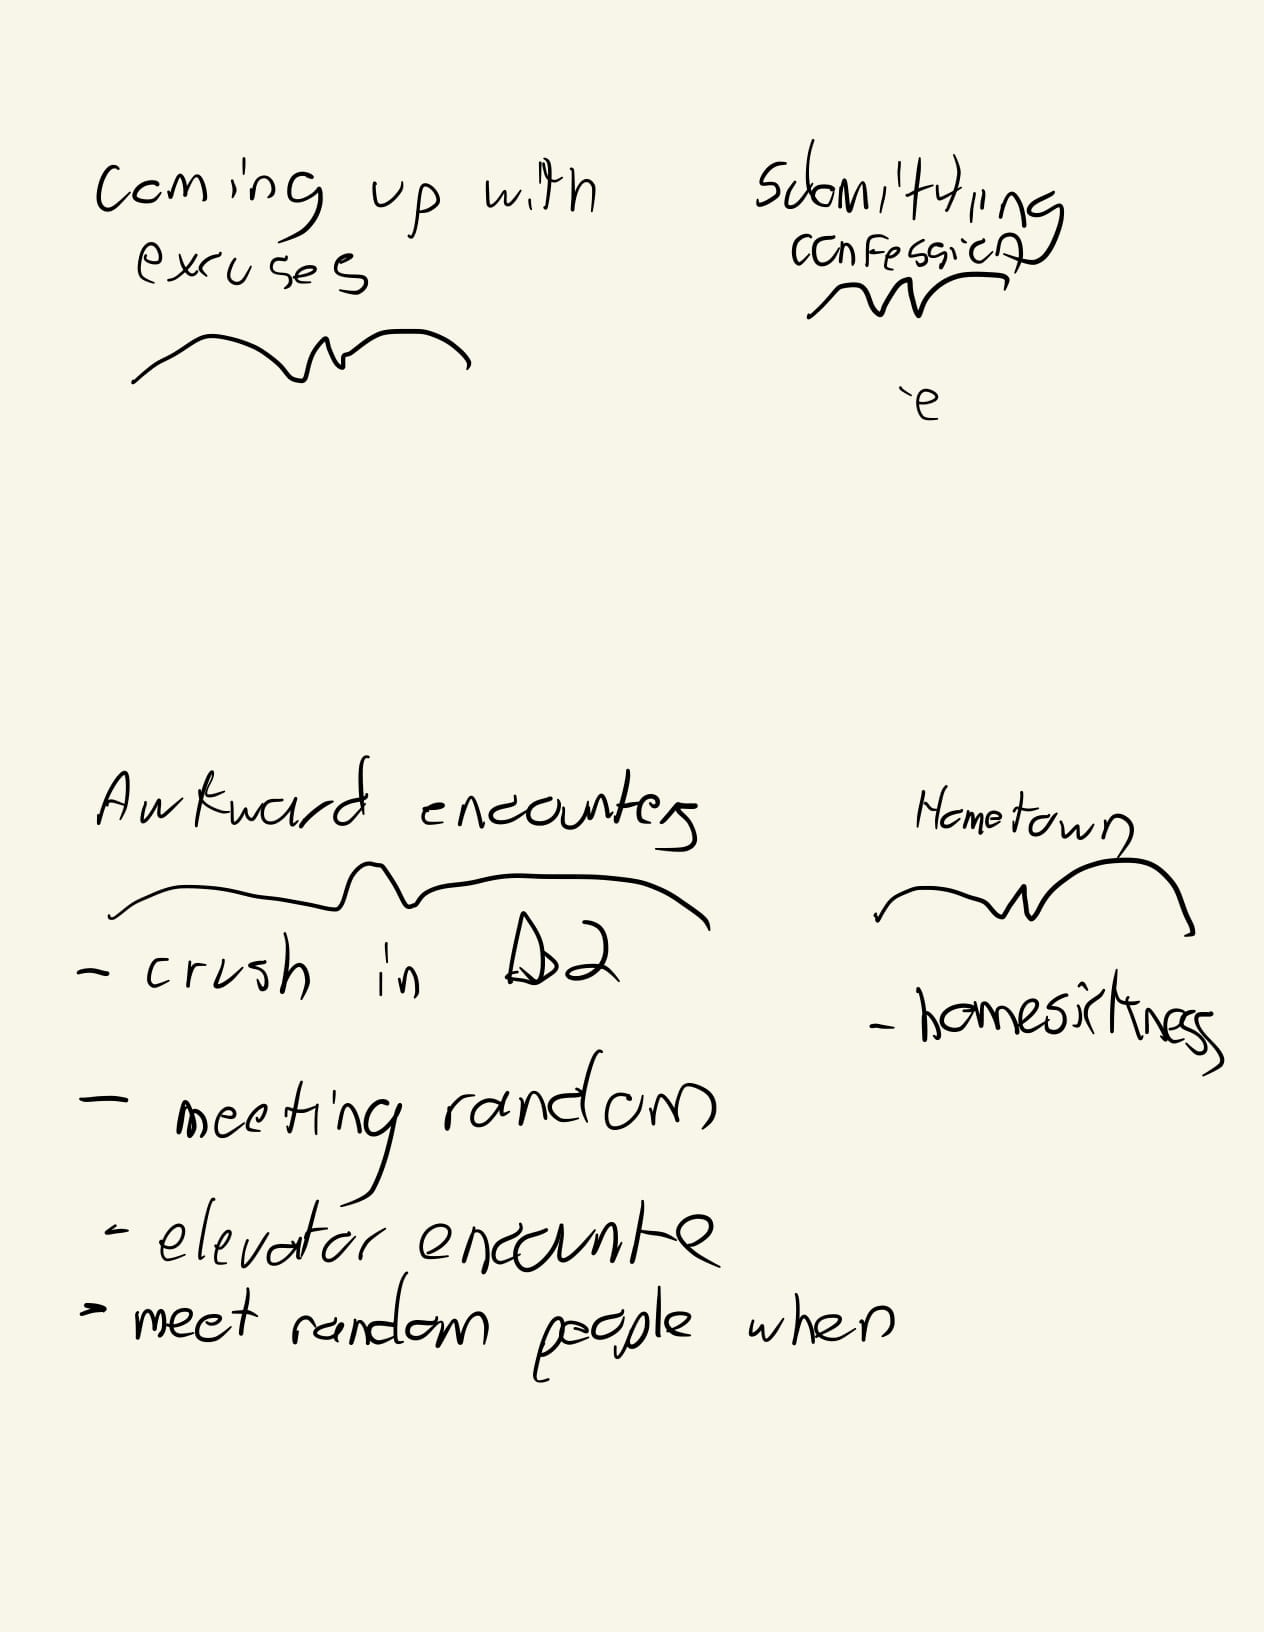 Coming up with
excuses
submitting
confession
`e
Awkward encounters
- crush in D2
- meeting random
- elevator encounte
- meet random people when
Hometown
- homesickness